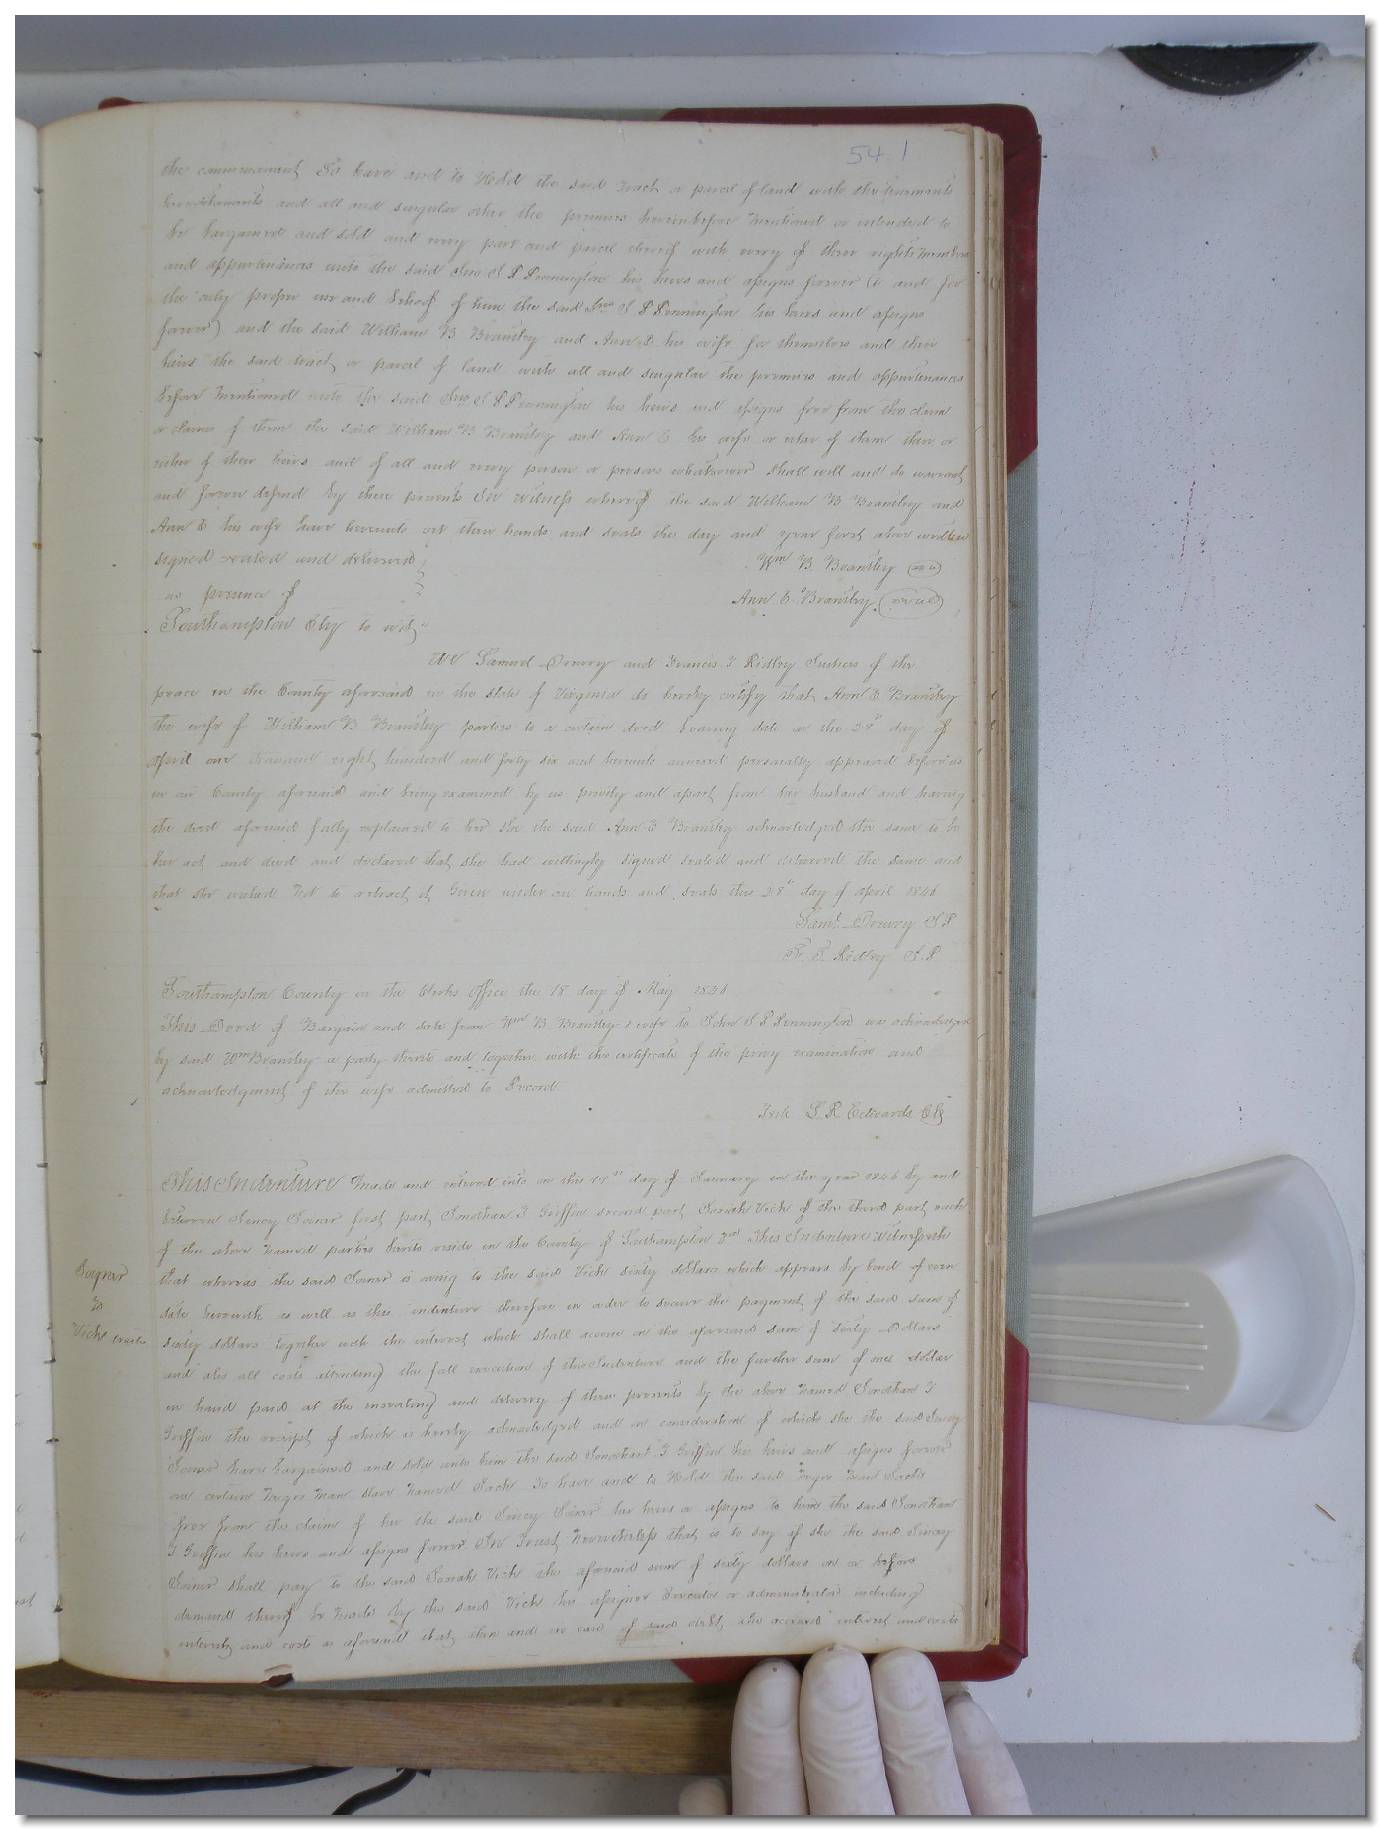 541
the commencement To have and to Hold the said tract or parcel of land with the tenements
hereditaments and all and singular other the premises hereinbefore mentioned or intended to
be bargained and sold and every part and parcel thereof with every of their rights members
and appurtenances unto the said Jno S P Pennington his heirs and assigns forever to and for
the only proper use and behoof of him the said Jno S P Pennington his heirs and assigns
forever) and the said William B Brantley and Ann E his wife for themselves and their
heirs the said tract or parcel of land with all and singular the premises and appurtenances
before mentioned unto the said Jno S P Pennington his heirs and assigns free from the claim
or claims of them the said William B Brantley and Ann E his wife or either of them their or
either of their heirs and of all and every person or persons whatsoever shall will and do warrant
and forever defend by these presents In witness whereof the said William B Brantley and
Ann E his wife have hereunto set their hands and seals the day and year first above written
signed sealed and delivered
in presence of
Wm B Brantley (seal)
Ann E Brantley (seal)
Southampton Cty to wit
We Samuel Drewry and Francis T Ridley Justices of the
peace in the County aforesaid in the state of Virginia do hereby certify that Ann E Brantley
the wife of William B Brantley parties to a certain deed bearing date on the day of
April one thousand eight hundred and forty six and hereunto annexed personally appeared before us
in our County aforesaid and being examined by us privily and apart from her husband and having
the deed aforesaid fully explained to her she the said Ann E Brantley acknowledged the same to be
her act and deed and declared that she had willingly signed sealed and delivered the same and
that she wished not to retract it Given under our hands and seals this 28th day of April 1846
Saml Drewry J P
Fr. T. Ridley J. P
Southampton County in the Clerks Office the 18 day of May 1846
This Deed of Bargain and sale from Wm B Brantley & wife to John S P Pennington was acknowledged
by said Wm Brantley a party thereto and together with the certificate of the privy examination and
acknowledgment of the wife admitted to Record
Teste L R Edwards Clk
This Indenture made and entered into on this day of January in the year 1846 by and
between Joiner first part Jonathan T Griffin second part Josiah Vick of the third part each
of the above named parties hereto reside in the County of Southampton This Indenture Witnesseth
that whereas the said Joiner is owing to the said Vick sixty dollars which appears by bond of even
date herewith as well as this indenture therefore in order to secure the payment of the said sum of
sixty dollars together with the interest which shall accrue on the aforesaid sum of sixty Dollars
and also all costs attending the full execution of this Indenture and the further sum of one dollar
in hand paid at the ensealing and delivery of these presents by the above named Jonathan T
Griffin the receipt of which is hereby acknowledged and in consideration of which she the said
Joiner have bargained and sold unto him the said Jonathan T Griffin his heirs and assigns forever
one certain Negro man slave named Jack To have and to Hold the said Negro man Jack
free from the claim of her the said Joiner her heirs or assigns to him the said Jonathan
T Griffin his heirs and assigns forever In Trust Nevertheless that is to say if she the said
Joiner shall pay to the said Josiah Vick the aforesaid sum of sixty dollars on or before
demand thereof be made by the said Vick his assigns Executor or administrator including
interest and costs as aforesaid that then and in case of said debt, the accrued interest and costs
Joyner
To
Vicks